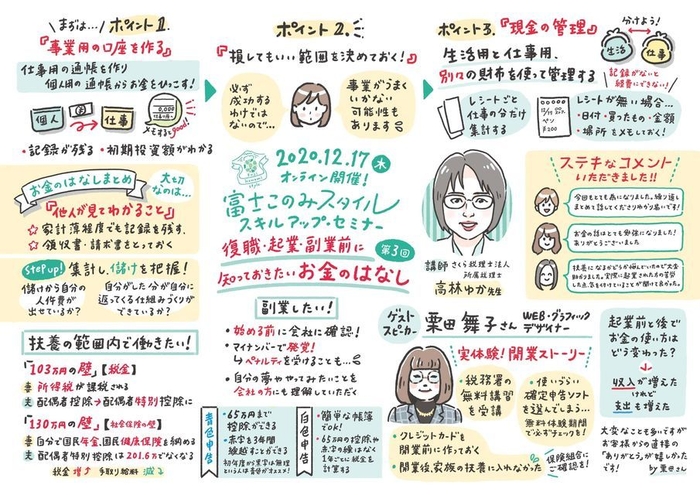 まずは… ポイント1.
『事業用の口座を作る』
仕事用の通帳を作り
個人用の通帳からお金をひっこす!
個人
仕事
メモするとgood!
・記録が残る ・初期投資額がわかる
お金のはなしまとめ
大切なのは…
『他人が見てわかること』
☆家計簿程度でも記録を残す、
☆領収書・請求書をとっておく
step up! 集計し、儲けを把握!
儲けから自分の
人件費が
出せているか?
自分がした分が自分に
返ってくる仕組みづくりが
できているか?
扶養の範囲内で働きたい!
「103万円の壁」【税金】
妻 所得税が課税される
夫 配偶者控除→配偶者特別控除に
「130万円の壁」【社会保険の壁】
妻 自分で国民年金、国民健康保険を納める
夫 配偶者特別控除は201.6万でなくなる
税金 増↑ 手取り給料 減↓
ポイント2.
『損してもいい範囲を決めておく!』
必ず
成功する
わけでは
ないので…
事業がうまく
いかない
可能性も
あります
2020.12.17 木
オンライン開催!
富士このみスタイル
スキルアップ・セミナー
第3回
復職・起業・副業前に
知っておきたいお金のはなし
副業したい!
・始める前に会社に確認!
・マイナンバーで発覚!
↳ペナルティを受けることも…
・自分の夢ややってみたいことを
会社の方にも理解していただく
青色申告
・65万円まで
控除ができる
・赤字も3年間
繰越すことができる
初年度が黒字は無理
という人は青色がオススメ!
白色申告
・簡単な帳簿
でOK!
・65万円の控除や
赤字の繰はなく
1年ごとに税金を
計算する
ポイント3.『現金の管理』
分けよう!
生活
仕事
生活用と仕事用、
別々の財布を使って管理する
記録がないと
経費にできない!
レシートごと
仕事の分だけ
集計する
ペン
¥200
レシートが無い場合…
・日付・買ったもの・金額
・場所 をメモしておく!
講師 さくら税理士法人
所属税理士
高林ゆか先生
ステキなコメント
いただきました!!
今回もとても為になりました。繰り返し
まとめて話してくださりやわり易いです!
お金の話はとても勉強になりました!
ありがとうございました
ゲスト
スピーカー
栗田 舞子さん
WEB・グラフィック
デザイナー
実体験!開業ストーリー
・税務署の
無料講習
を受講
・使いづらい
確定申告ソフト
を選んでしまう…
無料体験期間
で必ずチェックを!
・クレジットカードを
開業前に作っておく
・開業後、家族の扶養に入れなかった
保険組合に
ご確認を!
起業前と後で
お金の使い方は
どう変わった?
収入が増えた
けれど
支出も増えた
大変なことも多いですが
お客様からの直接の
「ありがとう」が嬉しかった
by 栗田さん